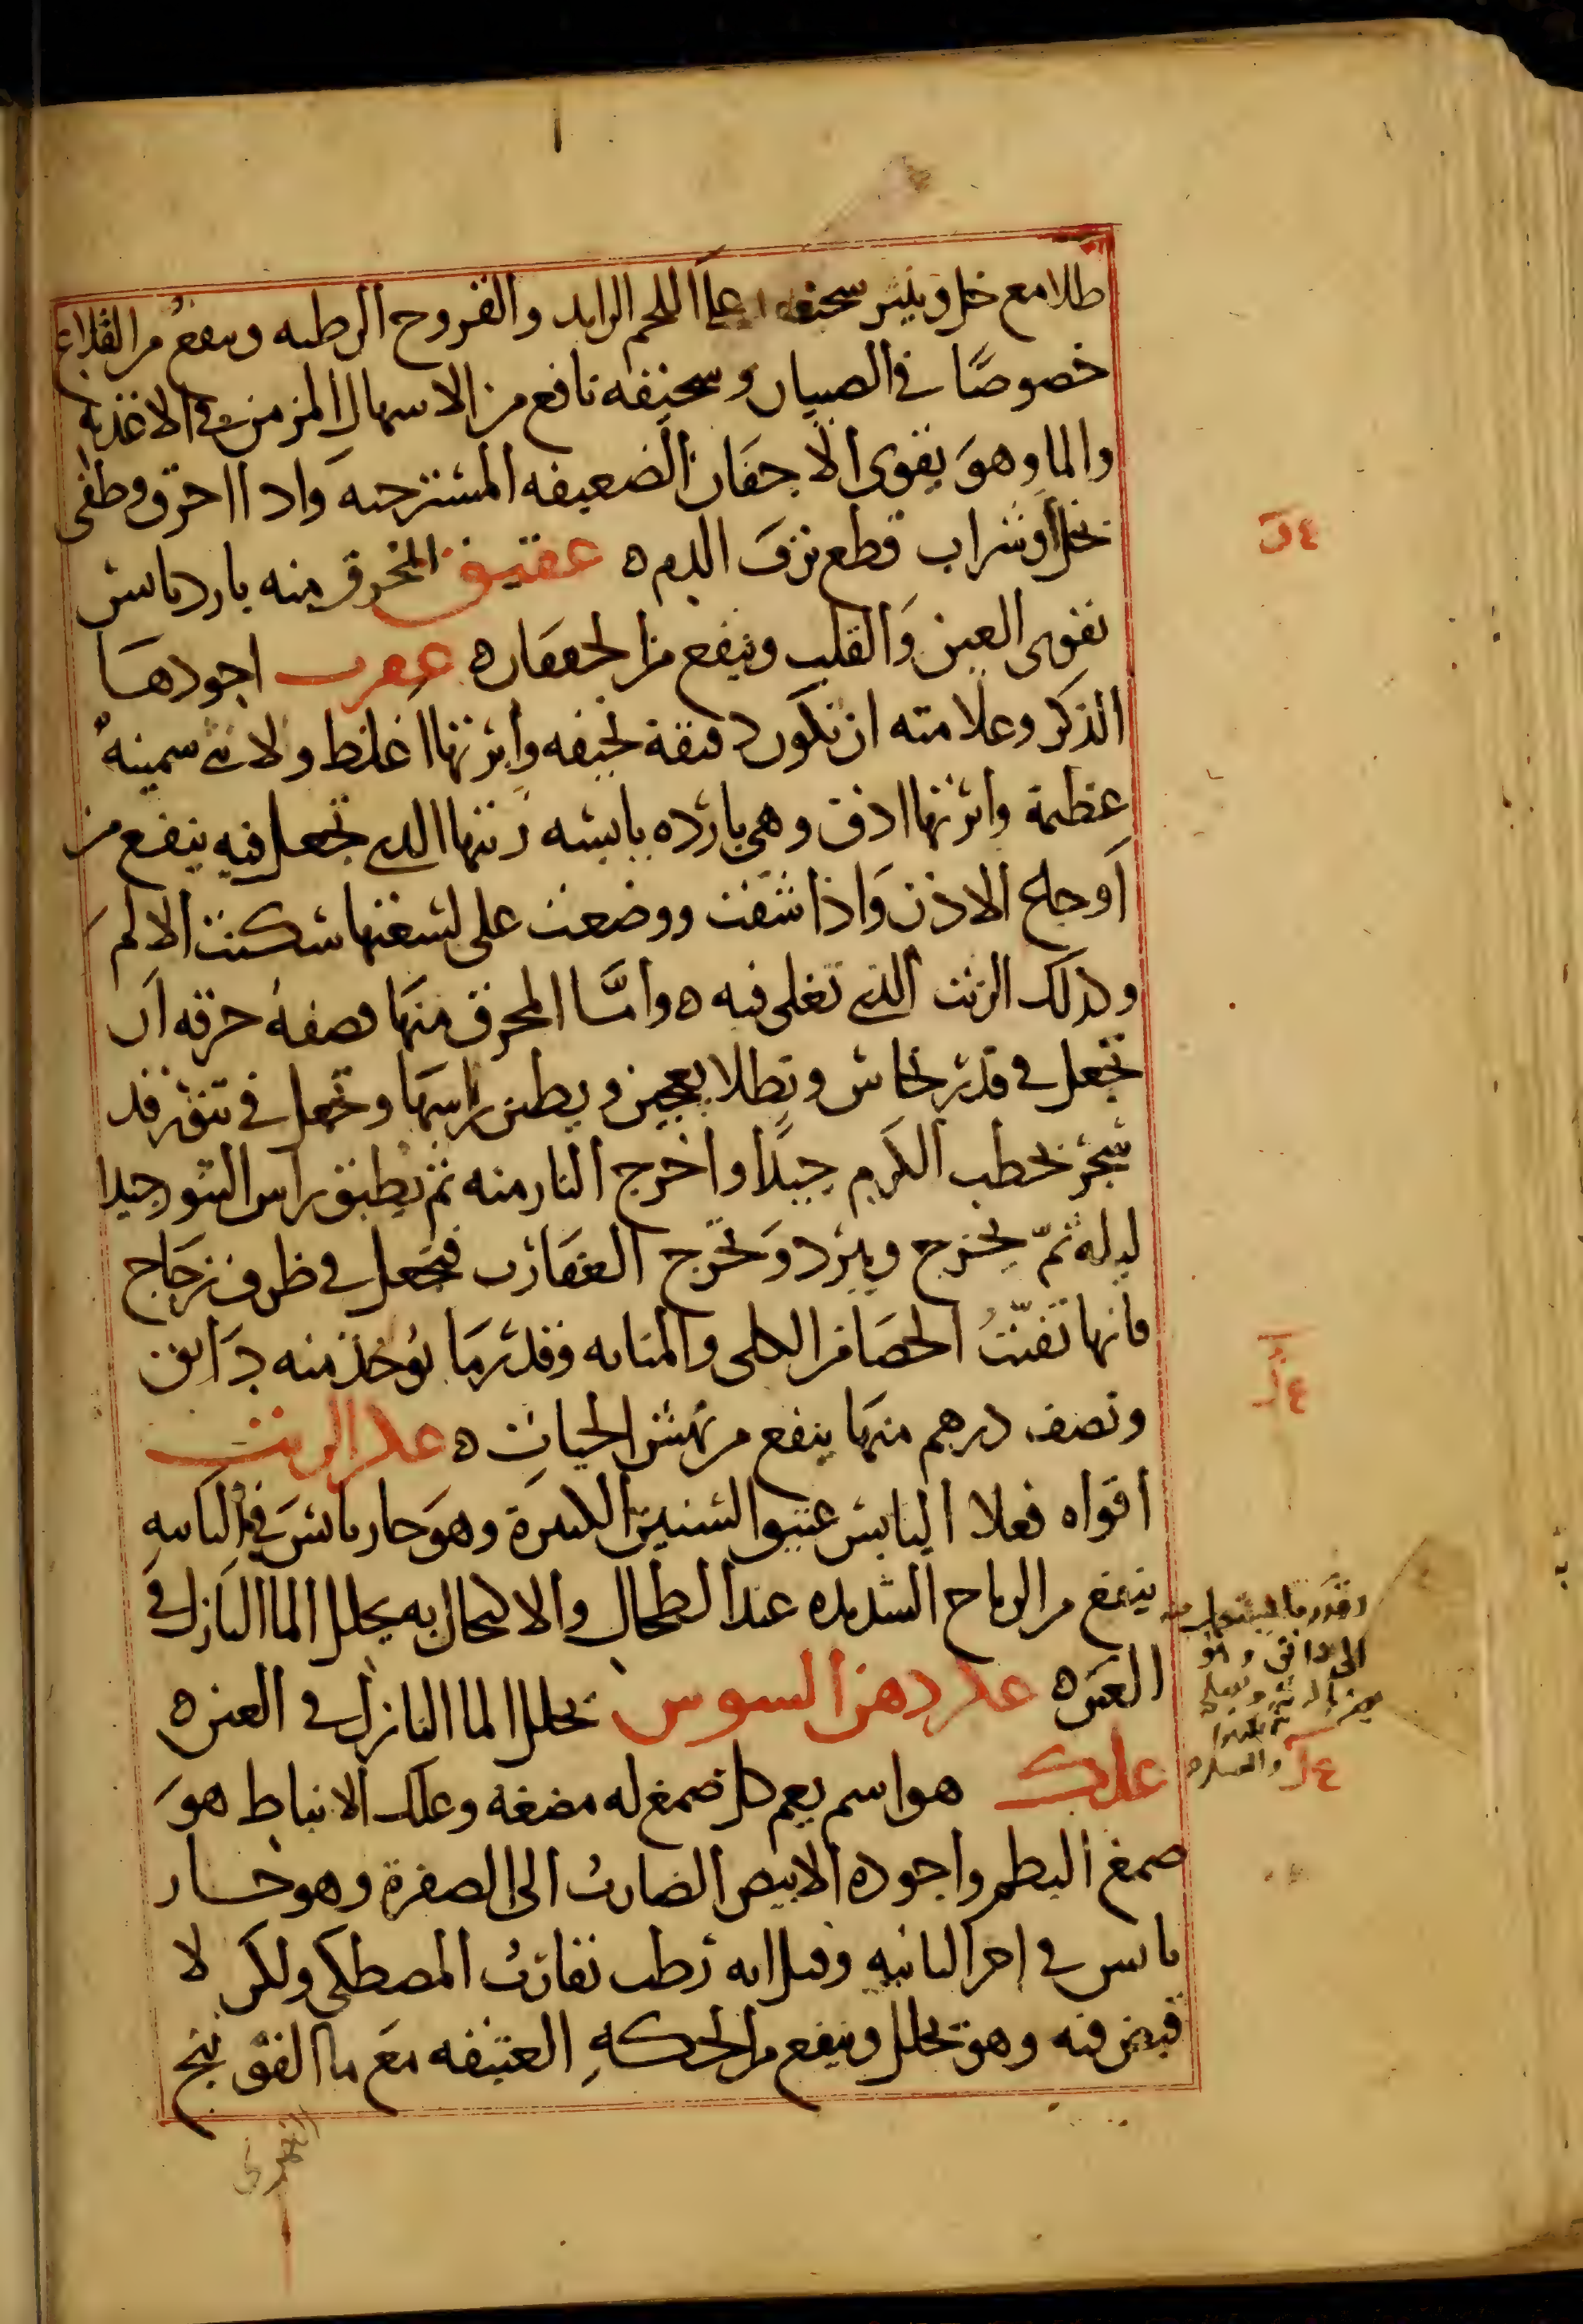 طلا مع خل وينثر سحيقه على اللحم الزايد والقروح الرطبه وينفع من القلاع
خصوصًا في الصبيان وسحيقه نافع من الاسهال المزمن في الاغذيه
والما وهو يقوى الاجفان الضعيفه المسترخيه واذا احرق وطفى
بخل أو شراب قطع نزف الدم ه عقيق المحرق منه بارد يابس
يقوى العين والقلب وينفع من الخفقان ه عقرب اجودها
الذكر وعلامته ان تكون دقيقة نحيفه وابرتها اغلظ والانثى سمينه
عظيمة وابرتها ادق وهي بارده يابسه زيتها الذي تجعل فيه ينفع من
أوجاع الاذن واذا شقت ووضعت على لسعتها سكنت الالم
وكذلك الزيت الذي تغلى فيه ه وأما المحرق منها فصفة حرقه ان
تجعل في قدر نحاس وتطلا بعجين ويطين راسها وتجعل في تنور قد
سجر بحطب الكرم جيدًا واخرج النار منه ثم يطبق راس التنور جيدا
ليله ثمّ يخرج ويبرد وتخرج العقارب فتجعل في ظرف زجاج
فانها تفتّتُ الحصا من الكلى والمثانه وقدر ما يؤخذ منه دانق
ونصف درهم منها ينفع من نهش الحيات ه عكر الزيت
اقواه فعلا اليابس عتيق السنين الكثيرة وهو حار يابس في الثانيه
ينفع من الرياح الشديده عند الطحال والاكتحال به يحلل الما النازل في
العين ه عكر دهن السوس يحلل الما النازل في العين ه
علك هو اسم يعم كل صمغ له مضغه وعلك الانباط هو
صمغ البطم واجوده الابيض الضارب الى الصفرة وهو حار
يابس في اخر الثانيه وقيل انه رطب يقارب المصطكى ولكن لا
قبض فيه وهو يحلل وينفع من الحكه العتيقه مع ما الفوتنج
وقدر ما يستعمل منه
الى دانق